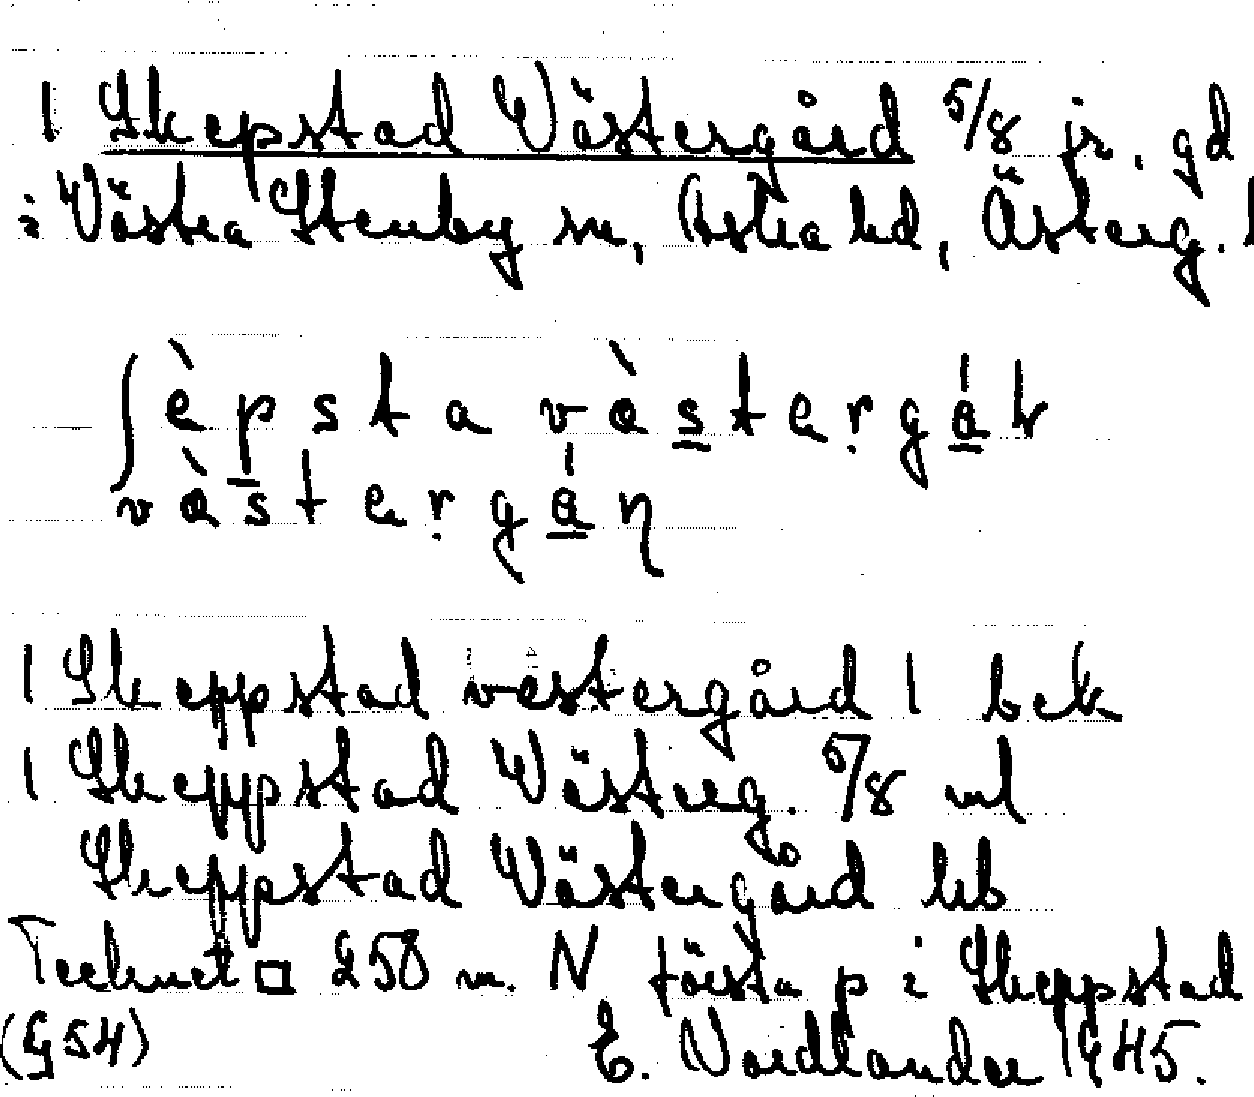 1 Skepstad Västergård 5/8 jr. gd
i Västra Stenby sn, Aska hd, Österg. l
ʃèpsta vàsterg̣ár
vàstergáη
1 Skeppstad vestergård 1 bek
1 Skeppstad Västerg. 5/8 ml
Skeppstad Västergård hb
Tecknet □ 250 m. N första p i Skeppstad
(G54) E. Nordlander 1945.